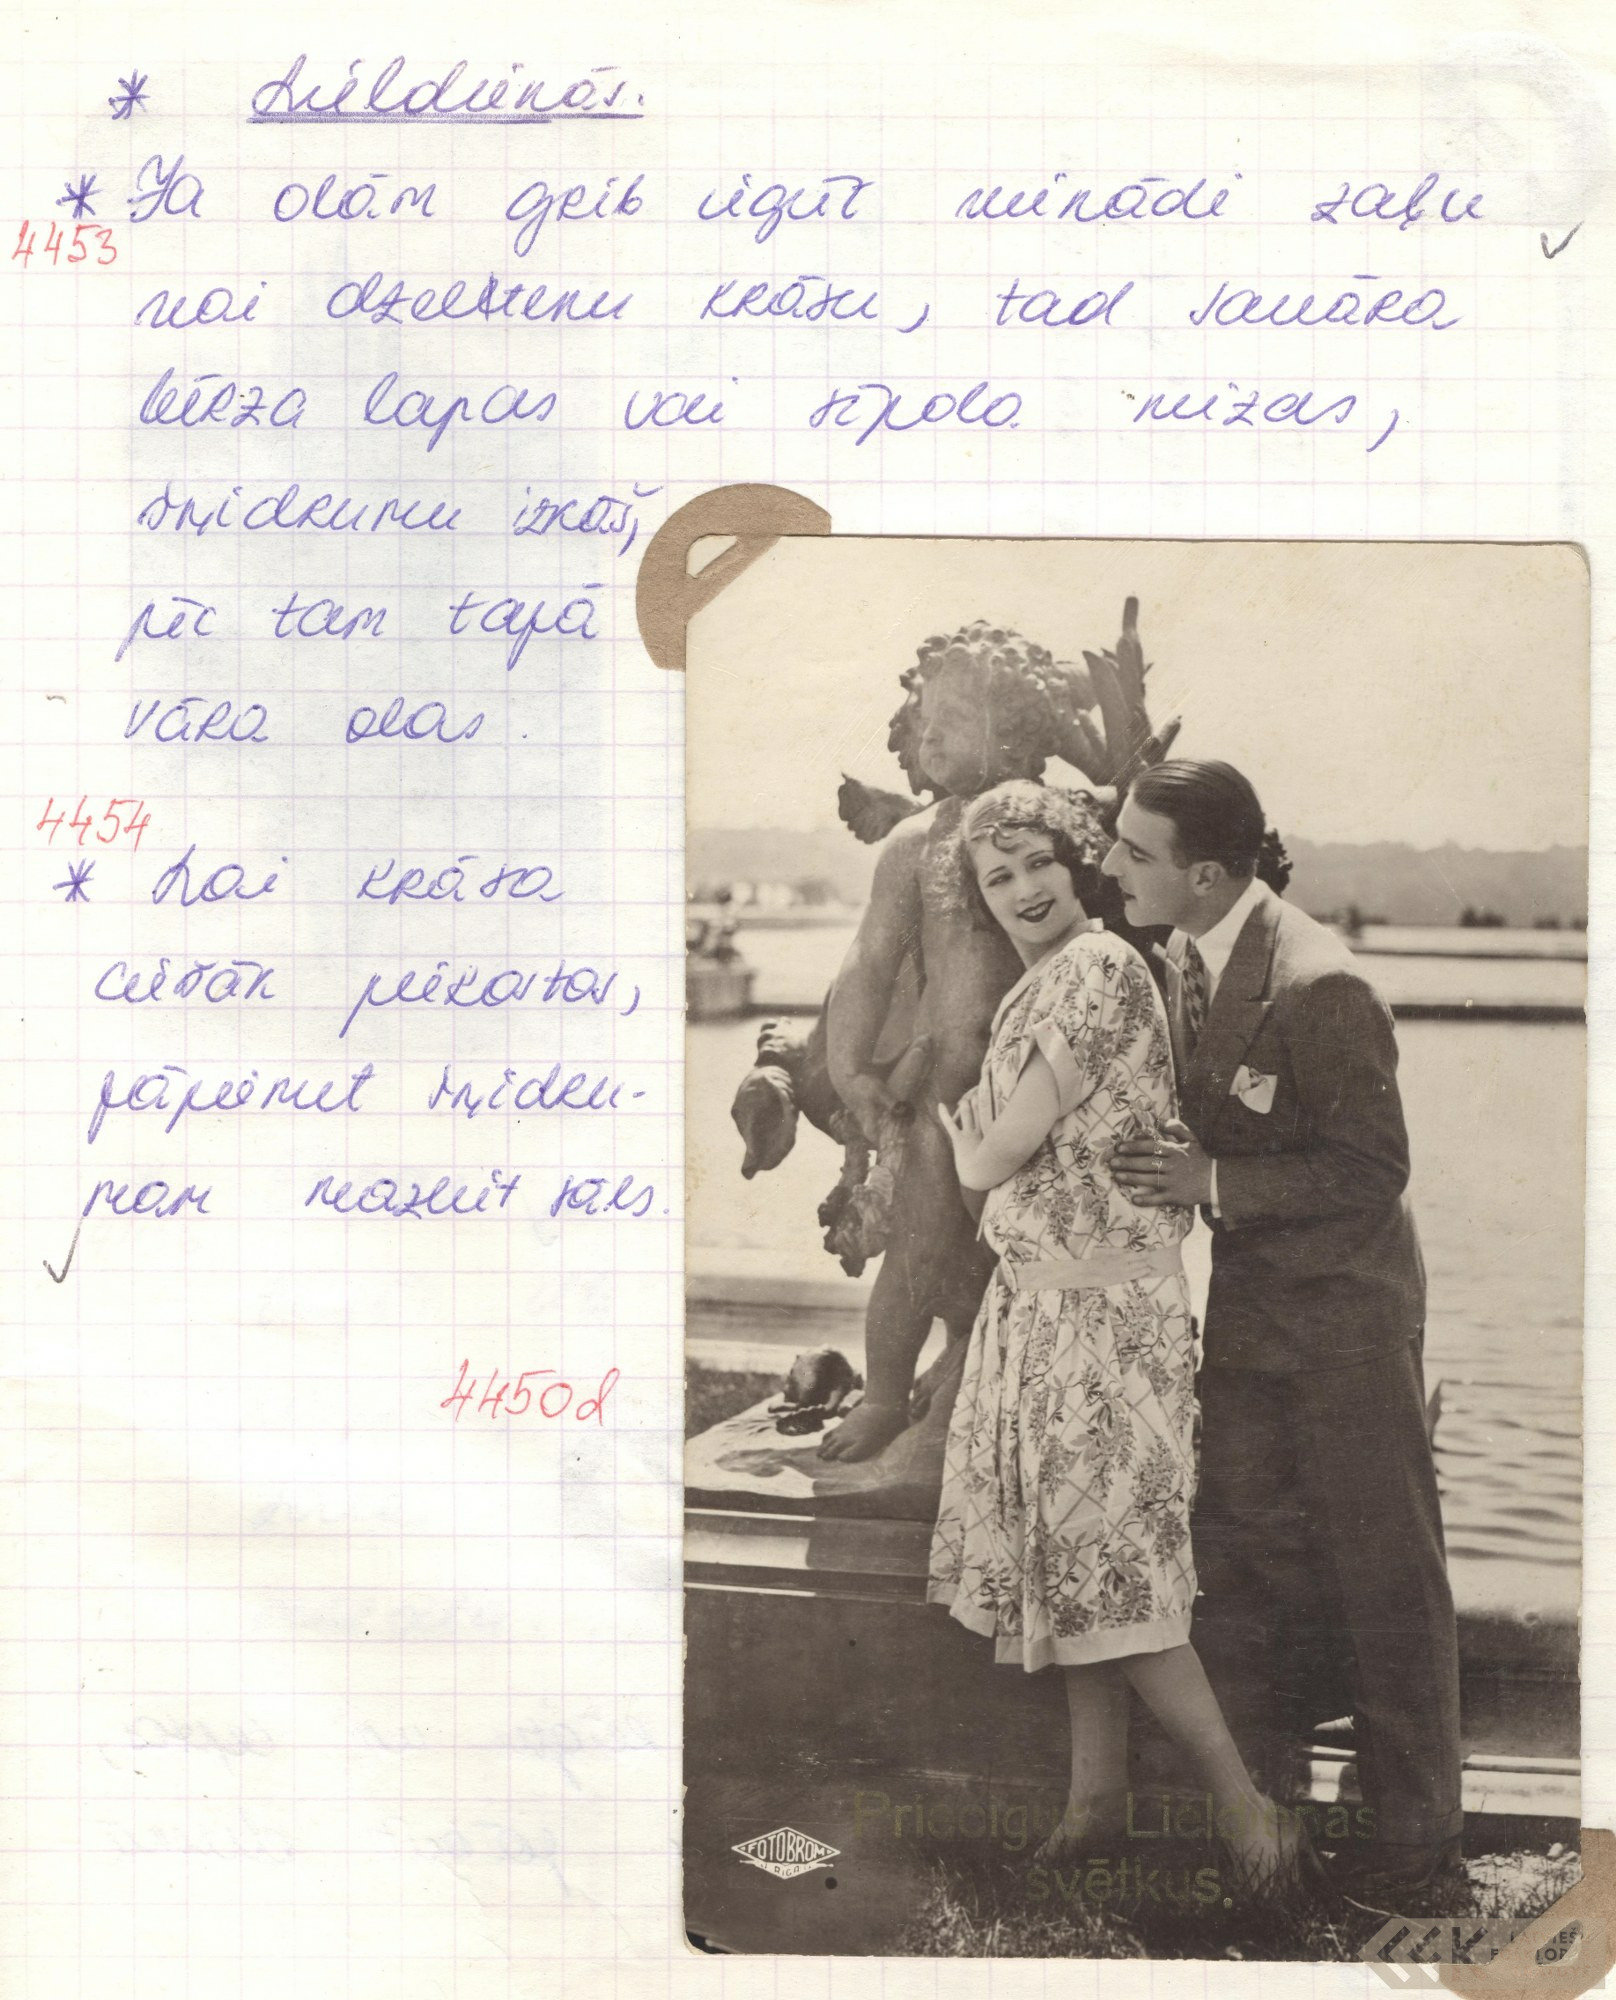 * Lieldienās.
* Ja olām grib iegūt vienādi zaļu
4453
vai dzeltenu krāsu, tad savāra
bērza lapas vai sīpola mizas,
šķidrumu izkāš,
pēc tam tajā
vāra olas.
4454
* Lai krāsa
ciešāk piekastos,
jāpievieno šķidru-
mam mazliet sāls.
4450d
Priecigus Lieldienas
svētkus.
FOTOBROM
RIGA